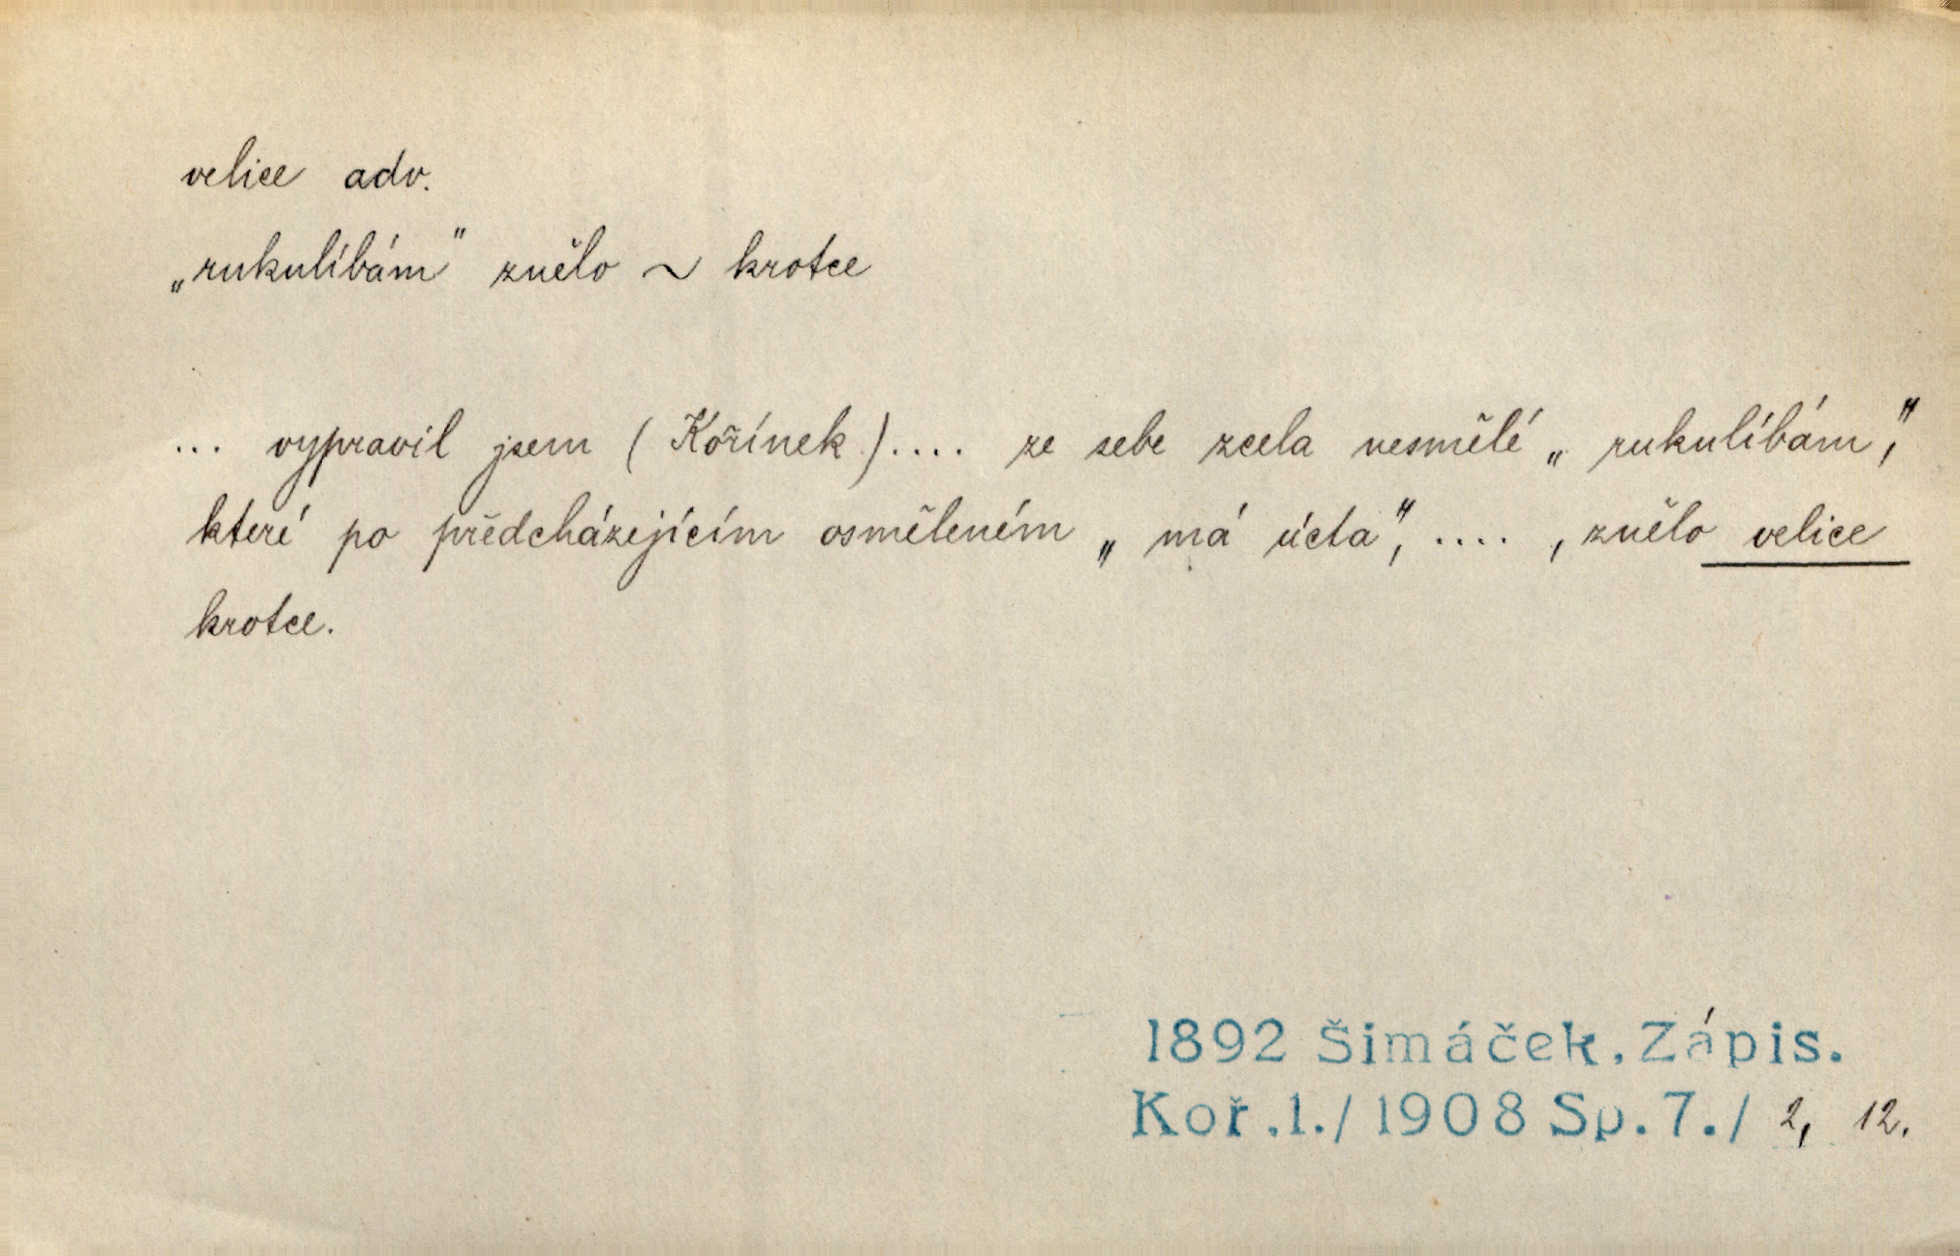 velice adv.
„rukulíbám" znělo ~ krotce
... vypravil jsem (Kořínek).... ze sebe zcela nesmělé „rukulíbám,"
které po předcházejícím osměleném „má úcta", .... , znělo velice
krotce.
1892 Šimáček, Zápis.
Koř.1./1908 Sp.7./ 2, 12.